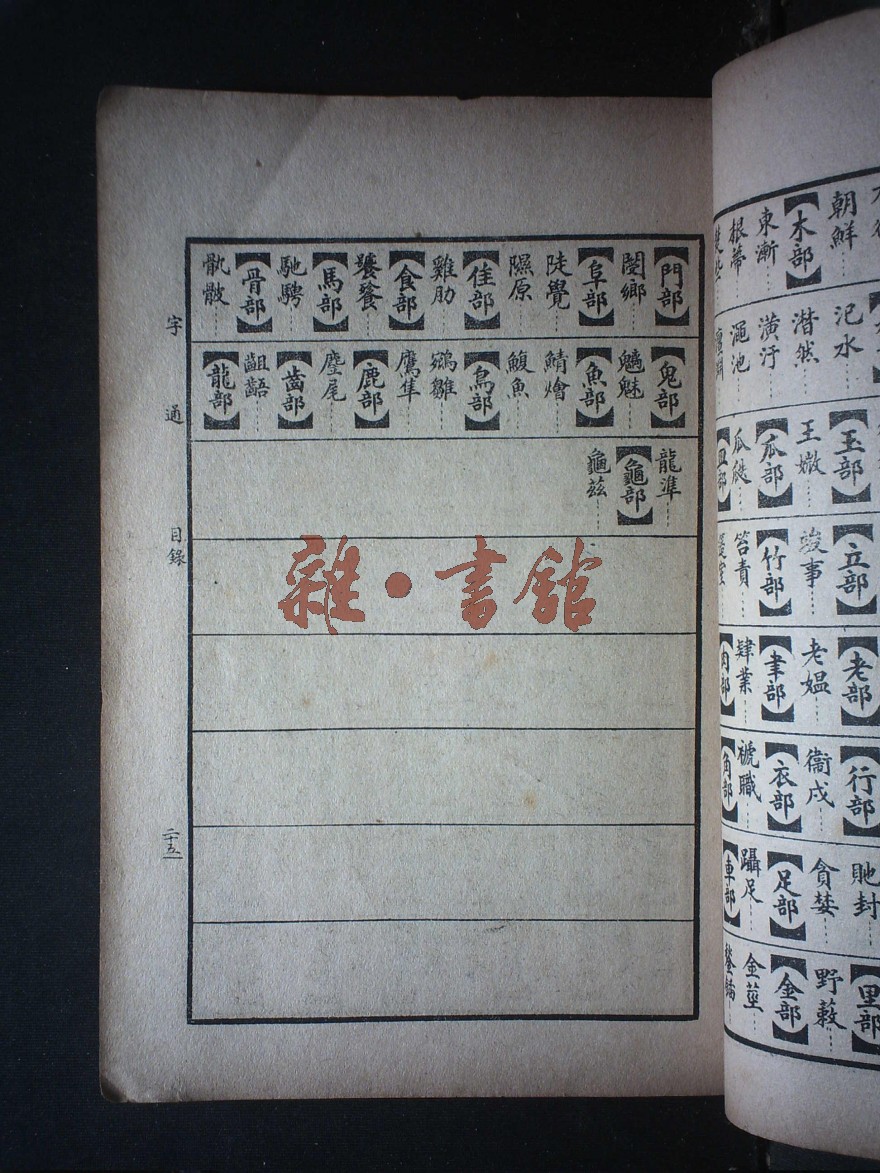 【門部】
閿鄉
【阜部】
陡覺
隰原
【隹部】
雞肋
【食部】
饔餮
【馬部】
馳騁
【骨部】
骩骳
【鬼部】
魑魅
【魚部】
鯖燴
鰒魚
【鳥部】
鵷雛
鷹隼
【鹿部】
麈尾
【齒部】
齟齬
【龍部】
龍準
【龜部】
龜茲
字通
目錄
二十五
雜·書館
朝鮮
【木部】
東漸
根蒂
汜水
潸然
潢汙
澠池
【玉部】
王媺
【瓜部】
瓜瓞
【皿部】
【立部】
竣事
【竹部】
笞責
【老部】
老媪
【聿部】
肄業
【肉部】
【行部】
衞戍
【衣部】
褫職
【角部】
貤封
貪婪
【足部】
躡足
【車部】
【里部】
野蔌
【金部】
金莖